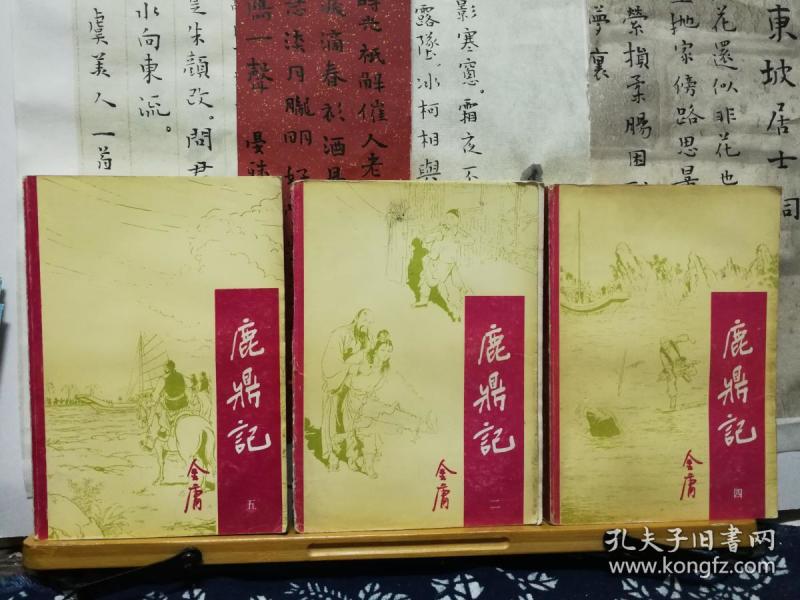 東坡居士詞
花還似非花也
抛家傍路思量
縈損柔腸困
夢裏
影寒窻。霜夜不
露墜冰柯相與
時光祇解催人老
滴春衫酒
淡月朧明好
一聲
是朱顔改。問君
水向東流。
虞美人一首
鹿鼎記
金庸
五
鹿鼎記
金庸
二
鹿鼎記
金庸
四
孔夫子旧書网
www.kongfz.com